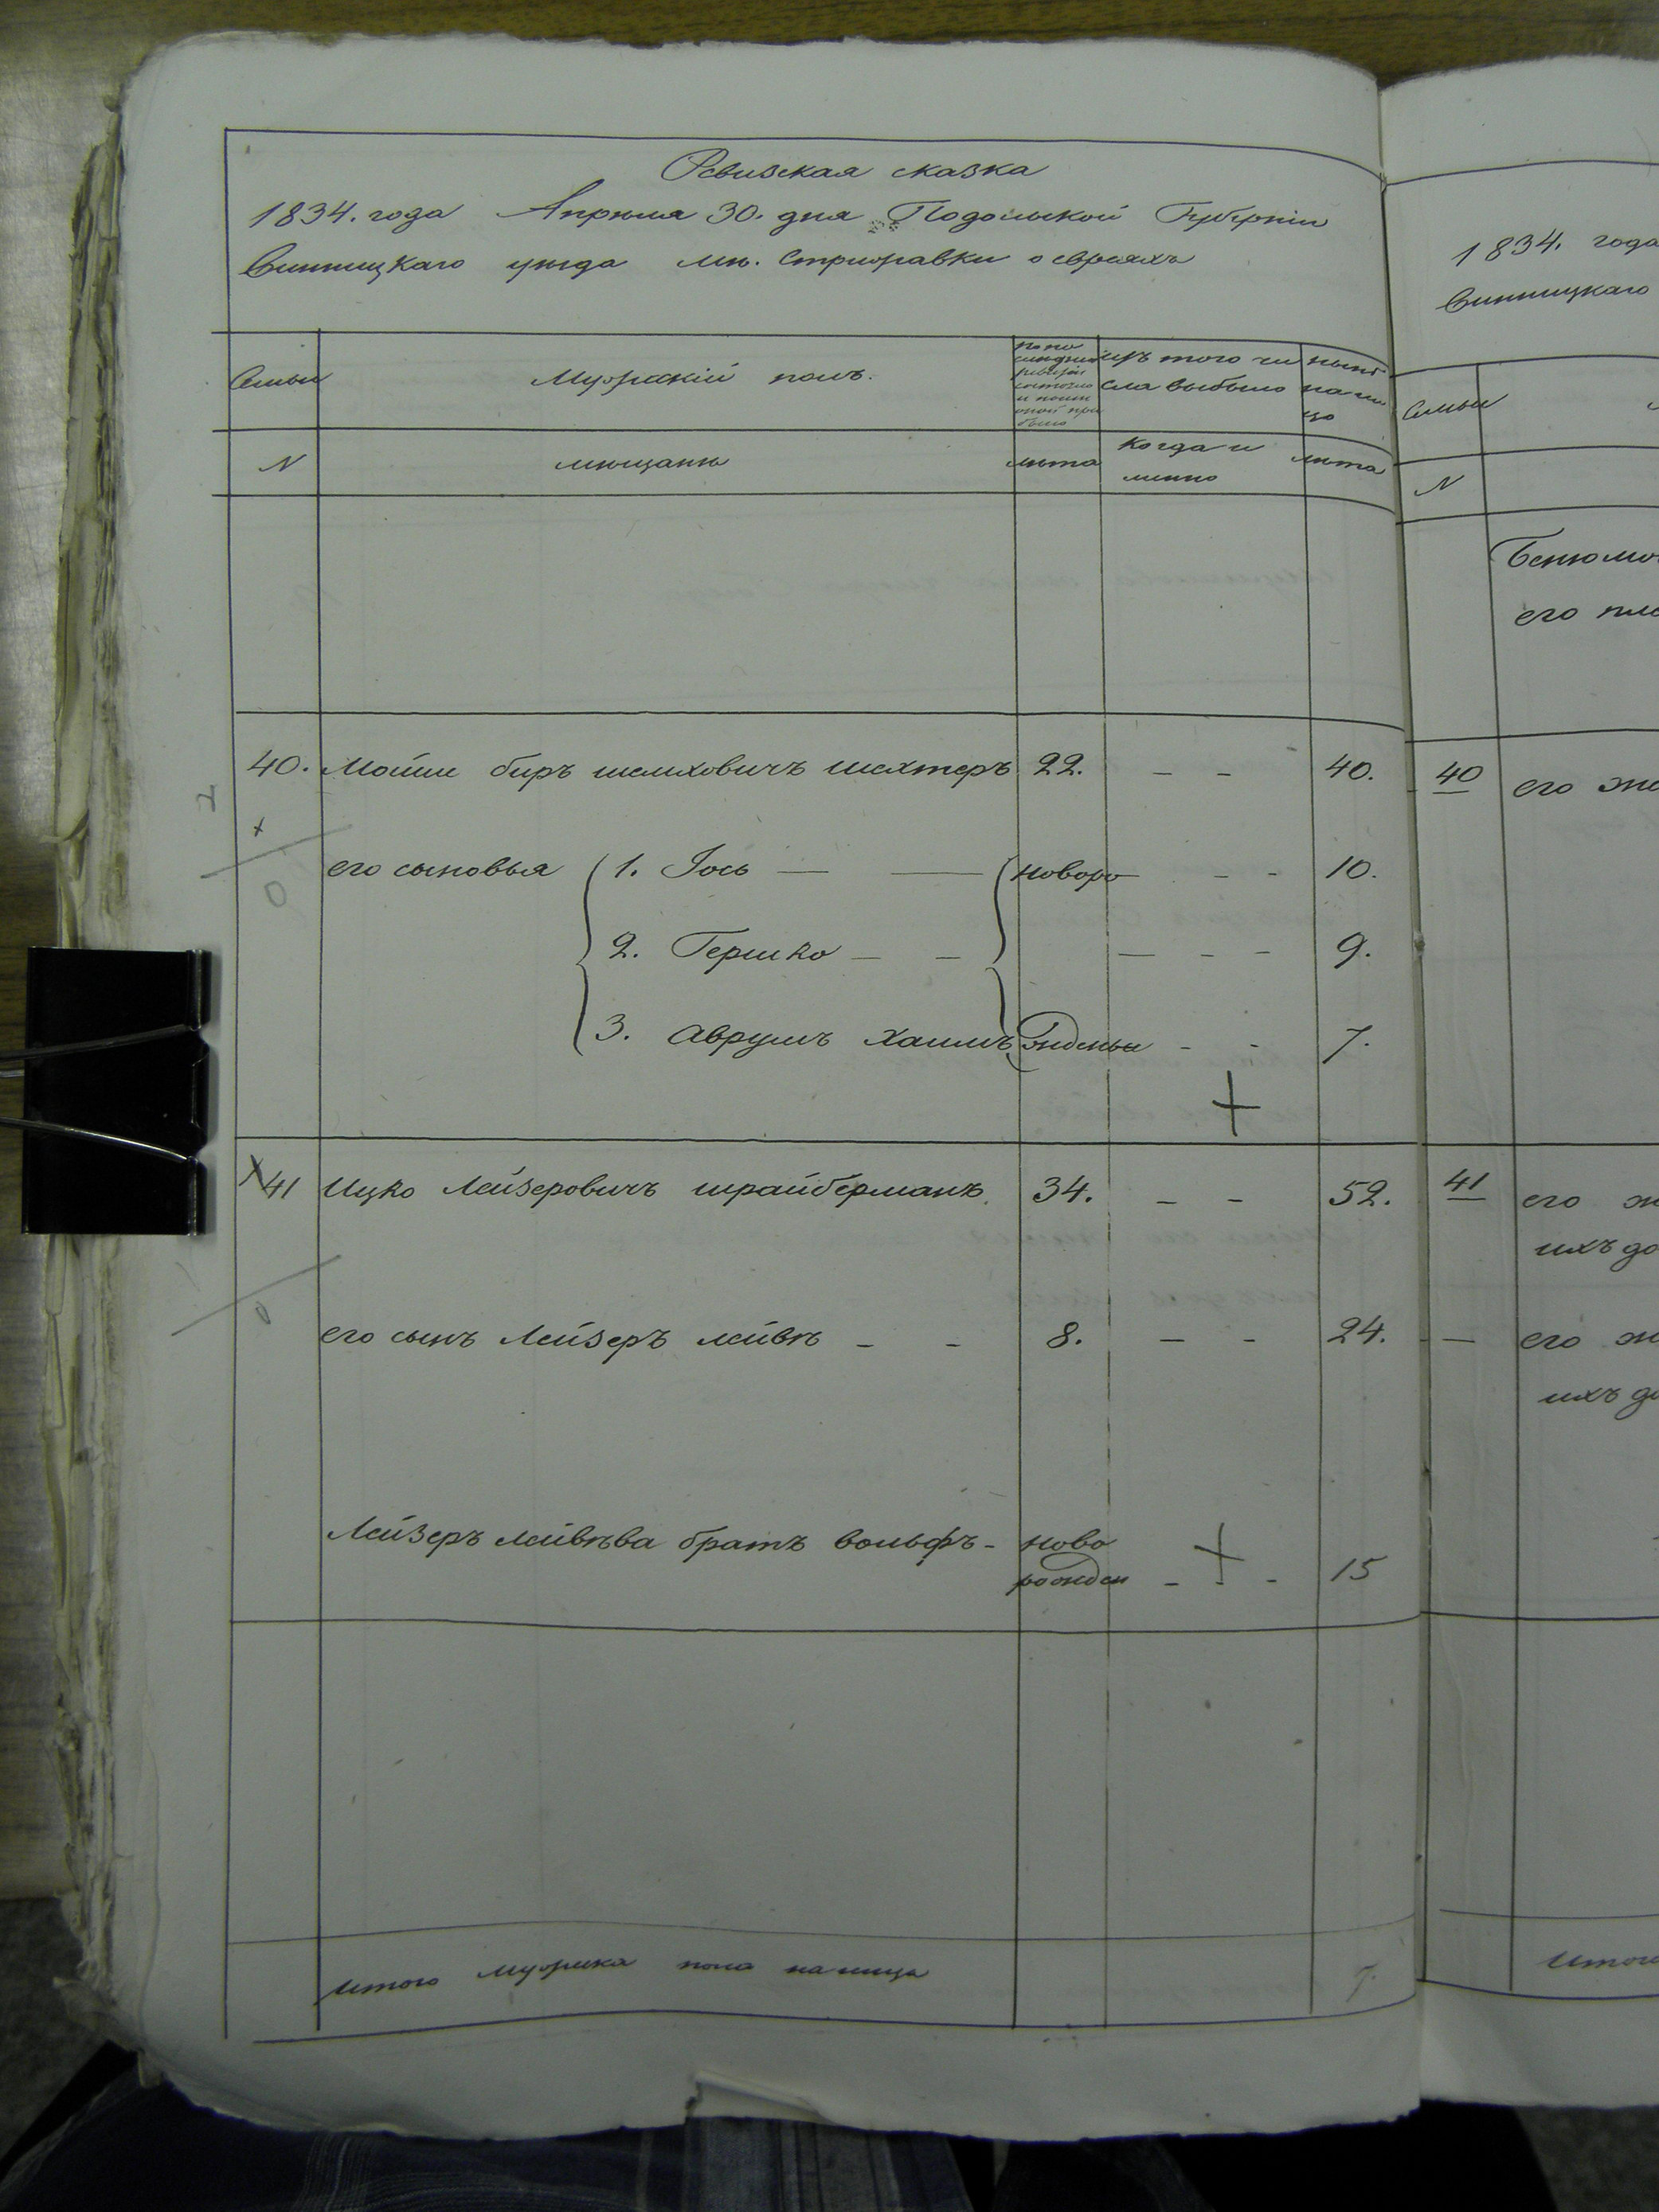 Ревизская сказка
1834. года Апреля 30. дня Подольской Губерніи
Винницкаго уезда мѣ. Стрижавки о евреяхъ
Семьи
Мужескій полъ.
по по
следней
ревизіи
состояло
и после
оной при
было
изъ того чи
сла выбыло
нынѣ
на ли
цо
N
мѣщанѣ
лѣта
когда и
менно
лѣта
40. Мойше беръ шмиловичъ шехтеръ 22. — — 40.
его сыновья 1. Іось — — новоро — — 10.
2. Гершко — — — — — 9.
3. Аврумъ Хаимъ жденые — — 7.
41 Ицко Лейзеровичъ шрайберманъ 34. — — 52.
его сынъ Лейзеръ лейбѣ — — 8. — — 24.
Лейзеръ лейбѣва братъ вольфъ — ново
рожден — — — 15
итого мужеска пола налица 7.
1834. года
Винницкаго
Семьи
N
его
40 его
41 его
ихъ
— его
ихъ
Итого